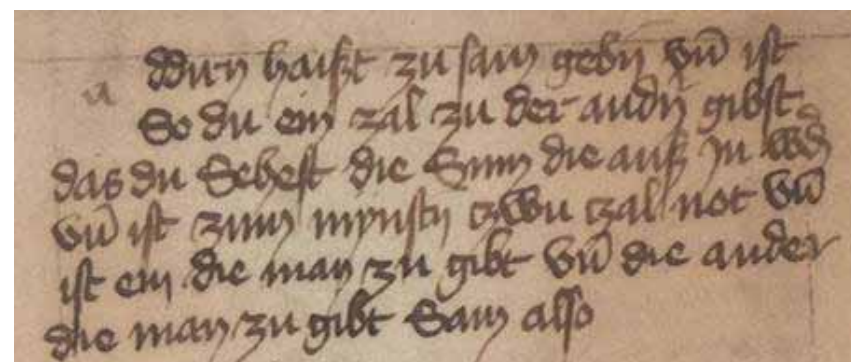 ddirn haißt zu sam gebn vn̄ ist
a
So du ein zal zu der andn̄ gibst
das du Sehest die Sum die auß jn wd̄
vn̄ ist zum mynstn tzwu tzal not vn̄
ist ein die man zu gibt vn̄ die ander
die man zu gibt Sam also